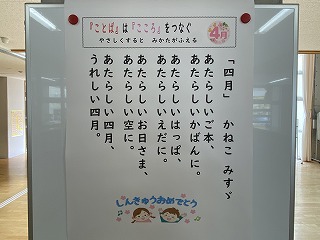 『ことば』は『こころ』をつなぐ
やさしくすると みかたがふえる
4月
「四月」 かねこ みすゞ
あたらしいご本、
あたらしいかばんに。
あたらしいはっぱ、
あたらしいえだに。
あたらしいお日さま、
あたらしい空に。
あたらしい四月、
うれしい四月。
しんきゅうおめでとう